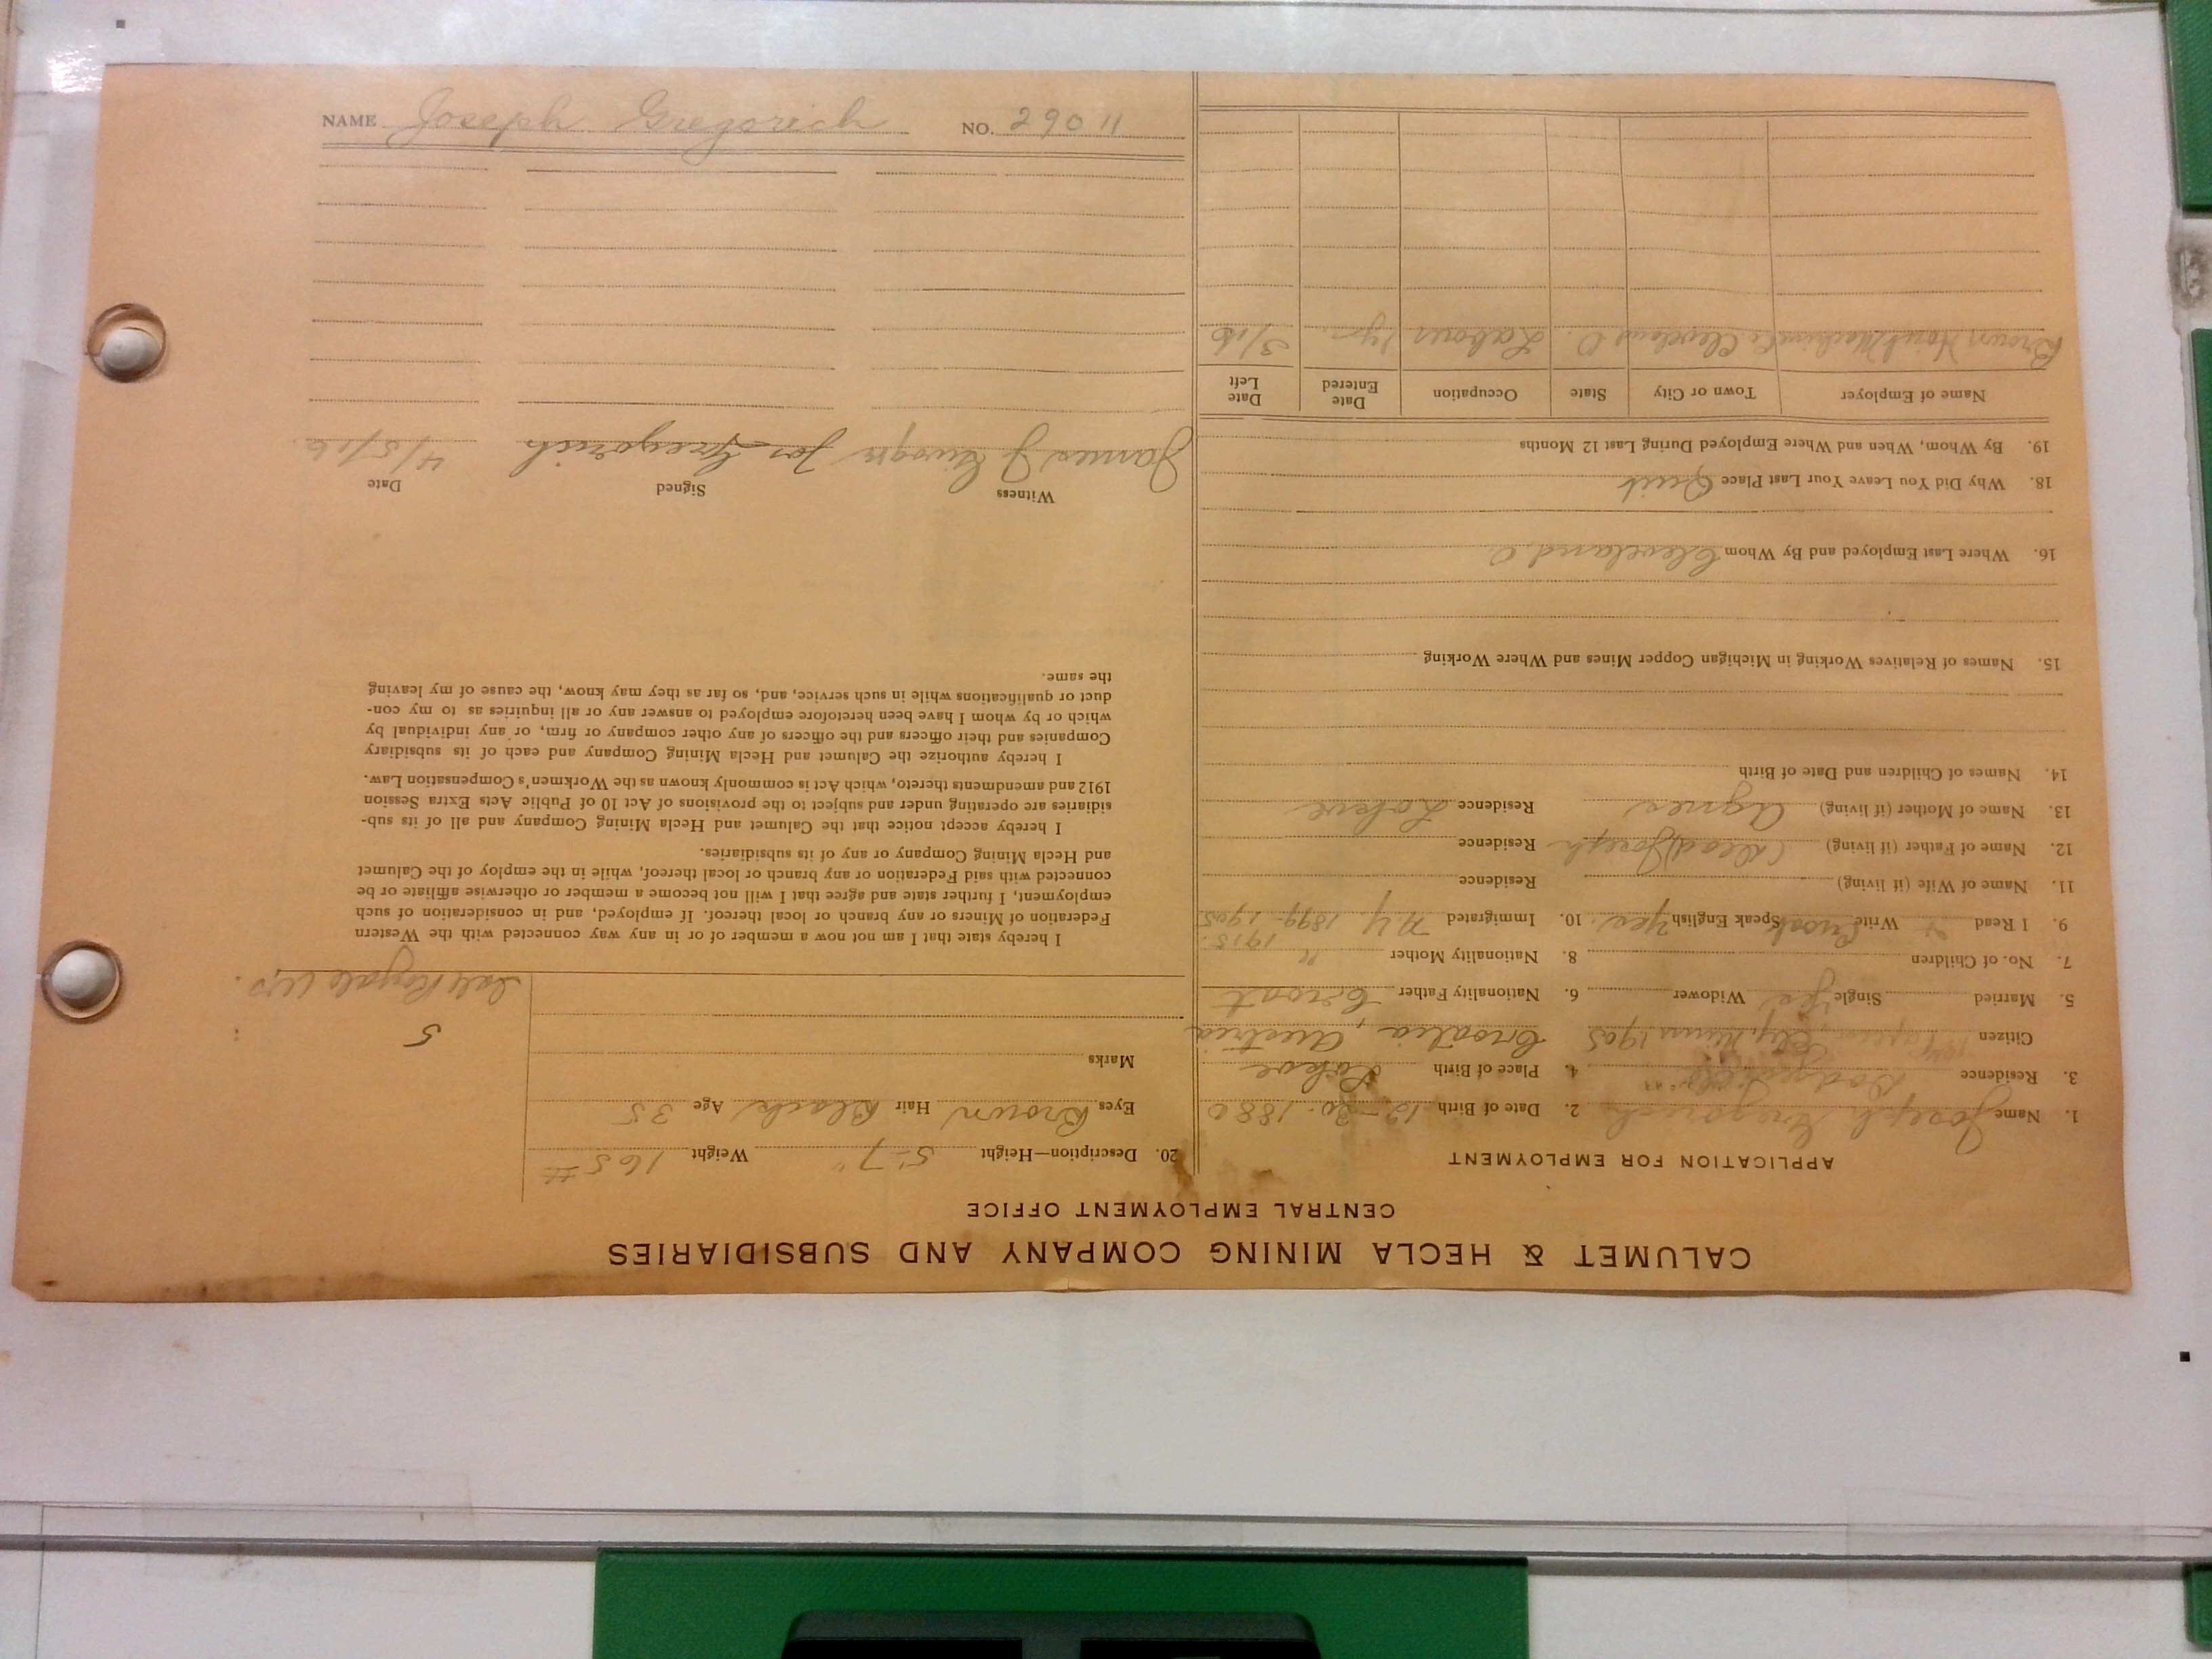 CALUMET & HECLA MINING COMPANY AND SUBSIDIARIES
CENTRAL EMPLOYMENT OFFICE
APPLICATION FOR EMPLOYMENT
1. Name Joseph Gregorich 2. Date of Birth 12-20-1880
3. Residence 4. Place of Birth Lokve
Citizen Ely, Minn 1905 Croatia, Austria
5. Married Single Yes Widower 6. Nationality Father Croat
7. No. of Children 8. Nationality Mother "
1915
9. I Read Write Croat Speak English Yes. 10. Immigrated N.Y. 1899 - 1905
11. Name of Wife (if living) Residence
12. Name of Father (if living) (Dead) Joseph Residence
13. Name of Mother (if living) Agnes Residence Lokve
14. Names of Children and Date of Birth
15. Names of Relatives Working in Michigan Copper Mines and Where Working
16. Where Last Employed and By Whom Cleveland O.
18. Why Did You Leave Your Last Place Quit
19. By Whom, When and Where Employed During Last 12 Months
Name of Employer Town or City State Occupation Date Entered Date Left
Brown Hoist Machine Co Cleveland O. Labour 1 yr. 3/16
20. Description—Height 5-7" Weight 165 #
Eyes Brown Hair Black Age 35
Marks
5
Isle Royale
I hereby state that I am not now a member of or in any way connected with the Western
Federation of Miners or any branch or local thereof. If employed, and in consideration of such
employment, I further state and agree that I will not become a member or otherwise affiliate or be
connected with said Federation or any branch or local thereof, while in the employ of the Calumet
and Hecla Mining Company or any of its subsidiaries.
I hereby accept notice that the Calumet and Hecla Mining Company and all of its sub-
sidiaries are operating under and subject to the provisions of Act 10 of Public Acts Extra Session
1912 and amendments thereto, which Act is commonly known as the Workmen's Compensation Law.
I hereby authorize the Calumet and Hecla Mining Company and each of its subsidiary
Companies and their officers and the officers of any other company or firm, or any individual by
which or by whom I have been heretofore employed to answer any or all inquiries as to my con-
duct or qualifications while in such service, and, so far as they may know, the cause of my leaving
the same.
Witness Signed Date
James J Jos Gregorich 4/5/16
NAME Joseph Gregorich NO. 29011